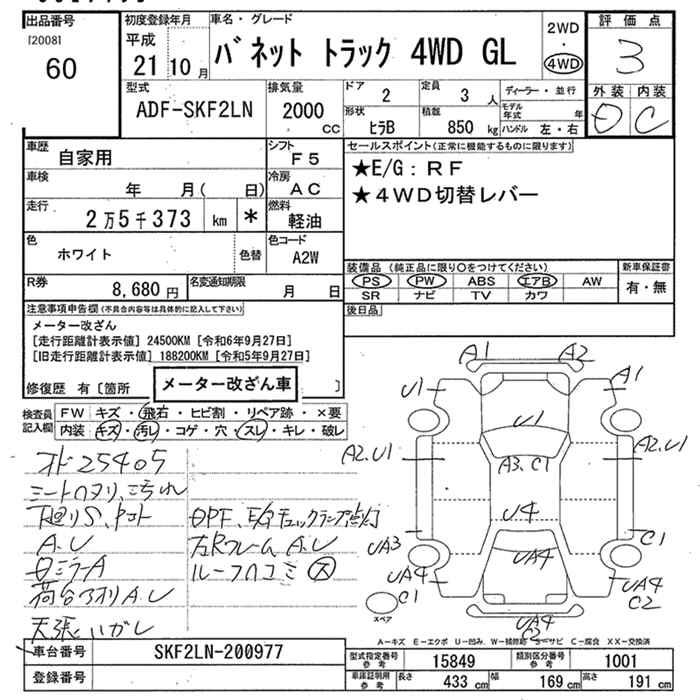 出品番号
[2008]
60
初度登録年月
平成
21 10 月
車名・グレード
バネット トラック 4WD GL
2WD
・
4WD
評価点
3
外装 内装
D C
型式
ADF-SKF2LN
排気量
2000
CC
ドア
2
定員
3 人
形状
ヒラB
積載
850 kg
ディーラー・並行
モデル年式 年
ハンドル 左・右
車歴
自家用
シフト
F5
車検
年 月( 日)
冷房
AC
走行
2万5千373 km *
燃料
軽油
色
ホワイト
色替
色コード
A2W
R券
8,680 円
名変通知期限
月 日
セールスポイント(正常に機能するものに限ります)
★E/G:RF
★4WD切替レバー
装備品 (純正品に限り○をつけてください)
PS PW ABS エアB AW
SR ナビ TV カワ
新車保証書
有・無
後日品
注意事項申告欄(不具合内容等は具体的に記入して下さい)
メーター改ざん
[走行距離計表示値] 24500KM [令和6年9月27日]
[旧走行距離計表示値] 188200KM [令和5年9月27日]
修復歴 有[箇所 ]
メーター改ざん車
検査員記入欄
FW キズ・飛石・ヒビ割・リペア跡・×要
内装 キズ・汚レ・コゲ・穴・スレ・キレ・破レ
オド25405
シートヘタリ、汚れ
下廻りS、P.コト
A.U
DPF、E/Gチェックランプ点灯
左Rフレーム A.U
ルーフヘコミ
ミラーA
荷台アオリA.U
天張りハガレ
A1 A2
U1 A1
U1
A2.U1 A3.C1 A2.U1
U4
UA3 C1
UA4
UA4 C1
UA4 C2
UA4
C2
スペア
A―キズ E―エクボ U―凹み W―補修跡 S―サビ C―腐食 XX―交換済
車台番号
SKF2LN-200977
登録番号
型式指定番号 参考
15849
類別区分番号 参考
1001
車庫証明用 参考
長さ 433 cm
幅 169 cm
高さ 191 cm